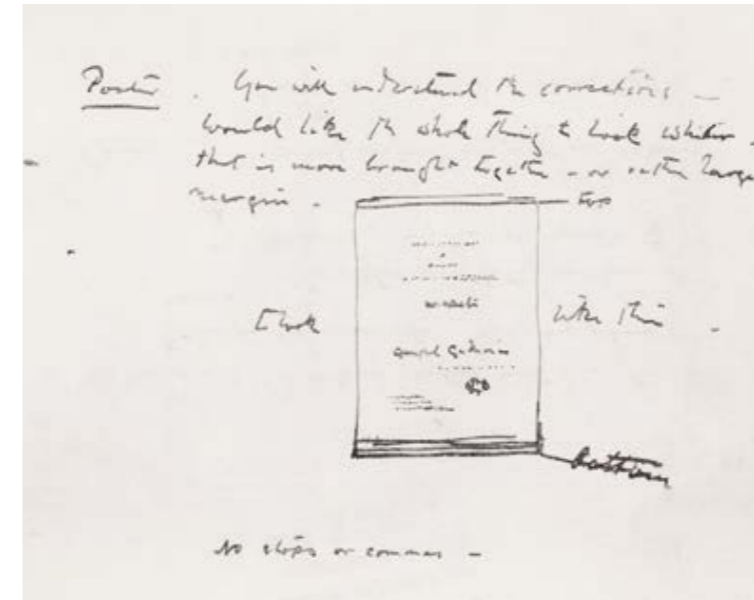 Poster. You will understand the corrections –
would like the whole thing to look whiter.
that is more brought together – or rather large
margin.
top
I look like this.
Goupil Galleries
bottom
No stops or commas –